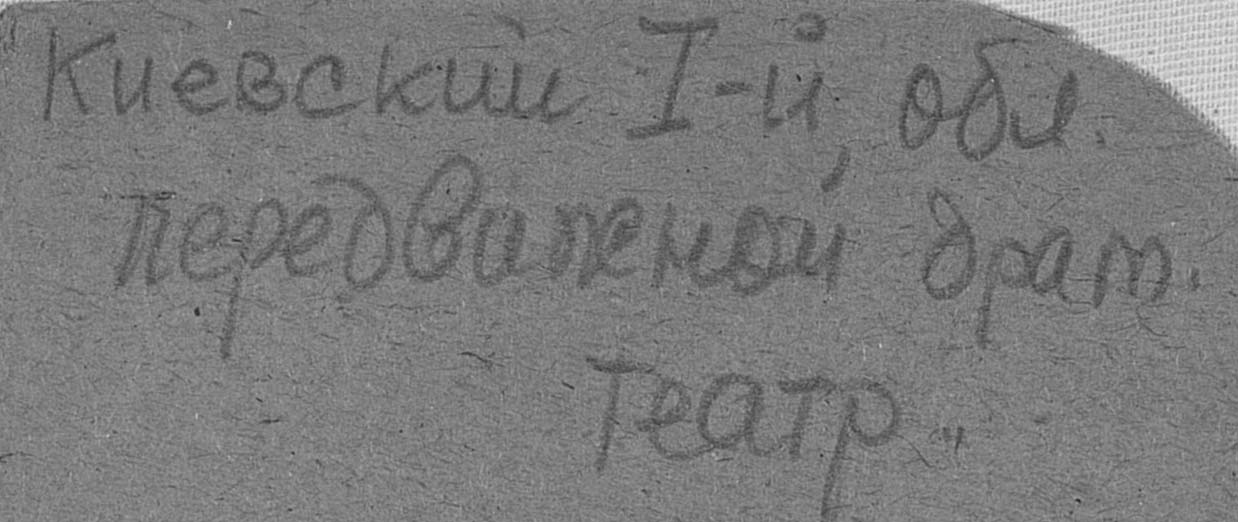 Киевский I-й, обл.
передважной драм.
театр„